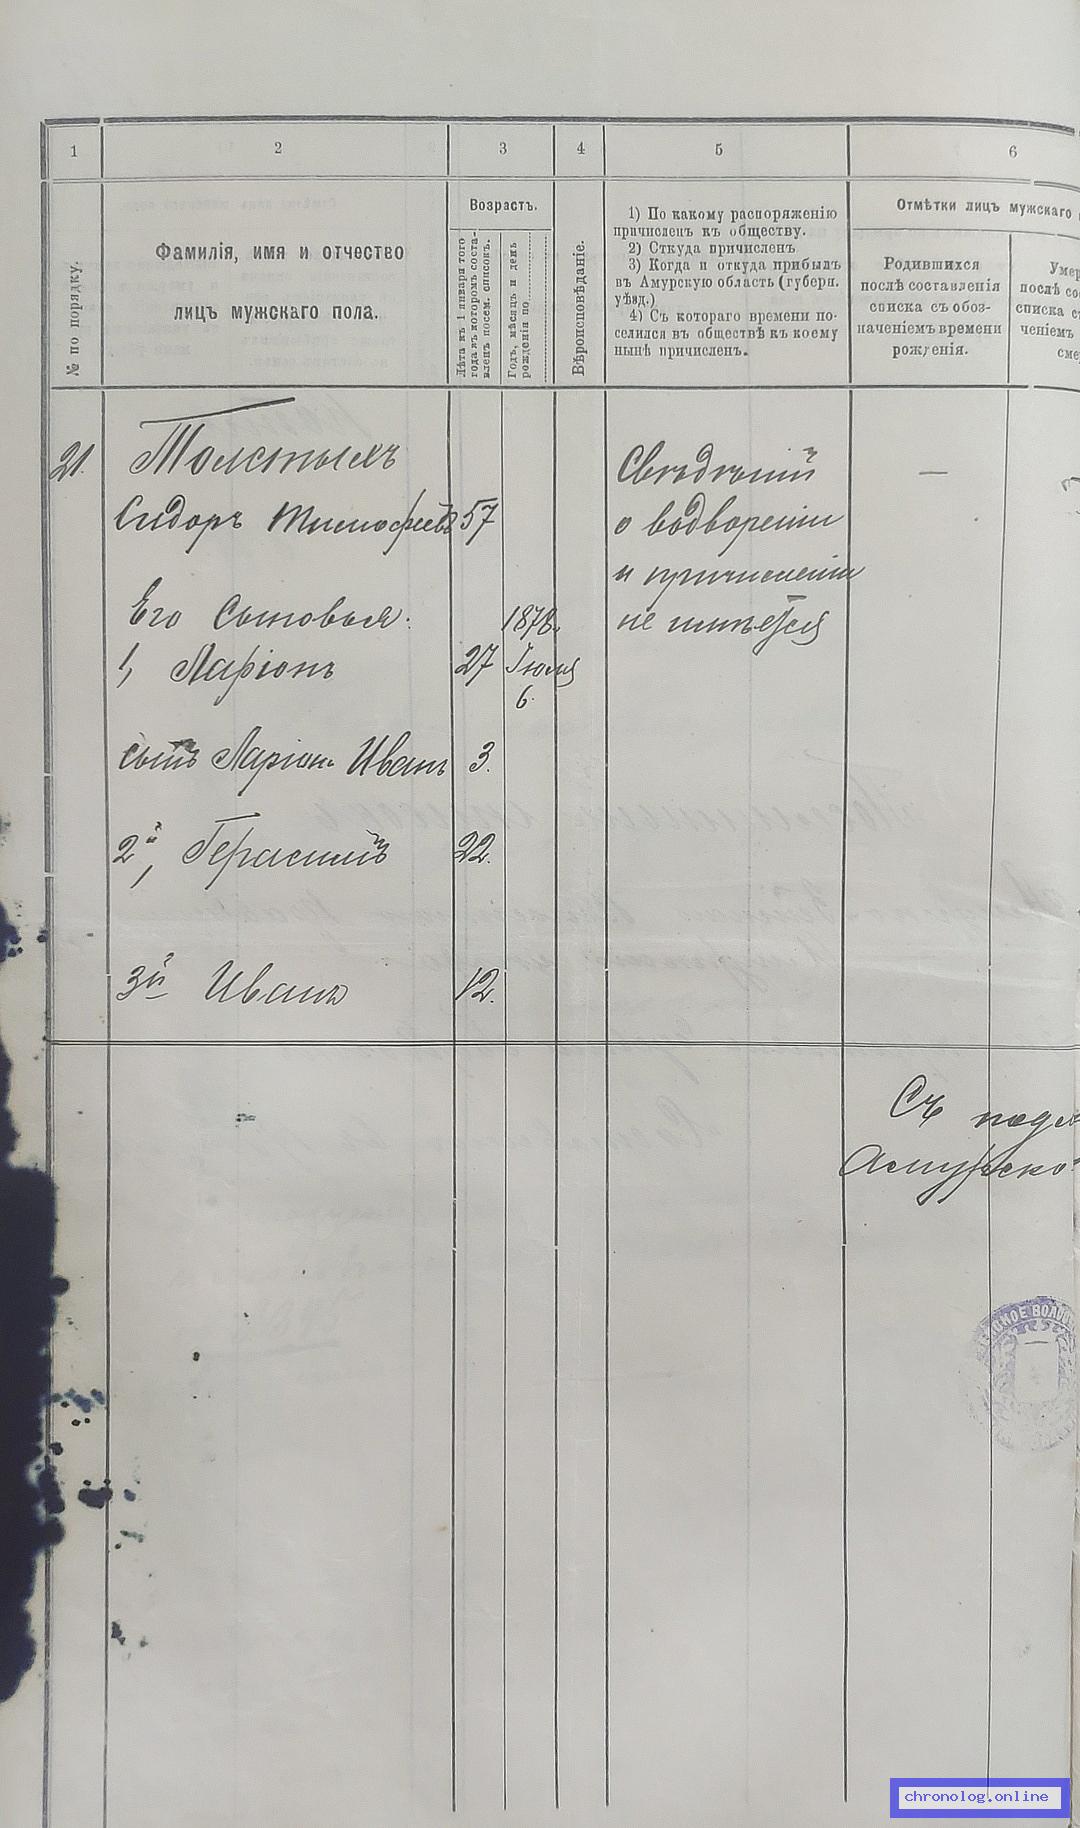 1 2 3 4 5 6
№ по порядку.
Фамилія, имя и отчество
лицъ мужскаго пола.
Возрастъ.
Лѣта къ 1 января того
года въ которомъ соста-
вленъ посем. списокъ.
Годъ, мѣсяцъ и день
рожденія по
Вѣроисповѣданіе.
1) По какому распоряженію
причисленъ къ обществу.
2) Откуда причисленъ
3) Когда и откуда прибылъ
въ Амурскую область (губерн.
уѣзд.)
4) Съ котораго времени по-
селился въ обществѣ къ коему
нынѣ причисленъ.
Отмѣтки лицъ мужскаго
Родившихся
послѣ составленія
списка съ обоз-
наченіемъ времени
рожденія.
Умер
послѣ со
списка с
ченіемъ
сме
21. Толстыхъ
Сидоръ Тимофеевъ 57
Его Сыновья.
1, Ларіонъ 27 1878. Іюля 6.
сынъ Ларіона Иванъ 3.
2й, Герасимъ 22.
3й Иванъ 12.
Свѣдѣній
о водвореніи
и причисленіи
не имѣется
—
Съ подл
Амурско
НОЕ ВОЛО
chronolog.online